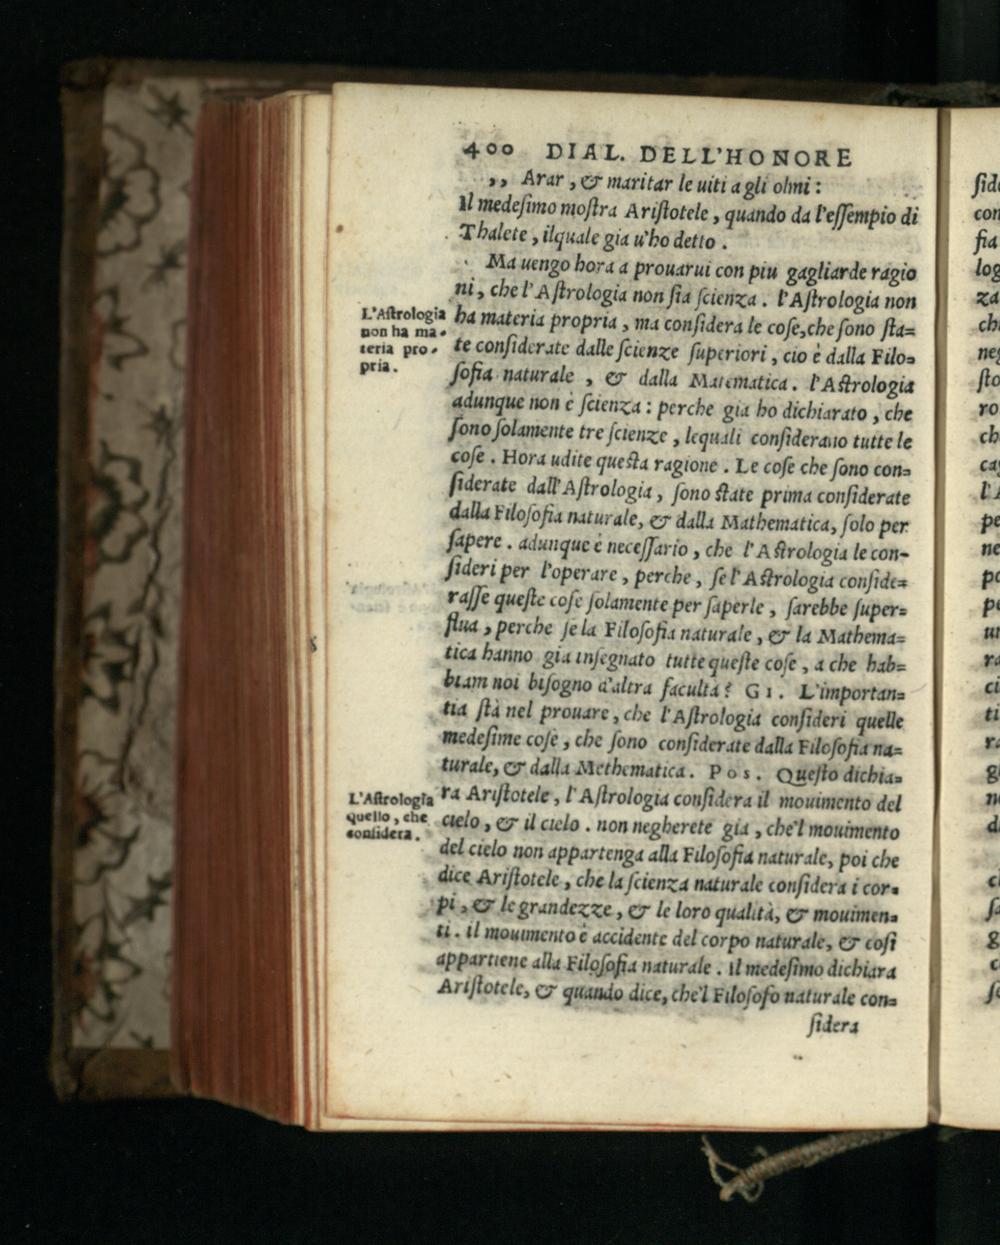 400 DIAL. DELL'HONORE
,, Arar, & maritar le uiti a gli olmi:
Il medesimo mostra Aristotele, quando da l'essempio di
Thalete, ilquale gia u'ho detto.
Ma uengo hora a prouarui con piu gagliarde ragio
ni, che l'Astrologia non sia scienza. l'Astrologia non
L'Astrologia
non ha ma-
teria pro-
pria.
ha materia propria, ma considera le cose, che sono sta=
te considerate dalle scienze superiori, cio è dalla Filo=
sofia naturale, & dalla Matematica. l'Astrologia
adunque non è scienza: perche gia ho dichiarato, che
sono solamente tre scienze, lequali considerano tutte le
cose. Hora udite questa ragione. Le cose che sono con=
siderate dall'Astrologia, sono state prima considerate
dalla Filosofia naturale, & dalla Mathematica, solo per
sapere. adunque è necessario, che l'Astrologia le con-
sideri per l'operare, perche, se l'Astrologia conside=
rasse queste cose solamente per saperle, sarebbe super=
flua, perche se la Filosofia naturale, & la Mathema=
tica hanno gia insegnato tutte queste cose, a che hab=
biam noi bisogno d'altra facultà? GI. L'importan=
tia stà nel prouare, che l'Astrologia consideri quelle
medesime cose, che sono considerate dalla Filosofia na=
turale, & dalla Methematica. Pos. Questo dichia=
L'Astrologia
quello, che
considera.
ra Aristotele, l'Astrologia considera il mouimento del
cielo, & il cielo. non negherete gia, che'l mouimento
del cielo non appartenga alla Filosofia naturale, poi che
dice Aristotele, che la scienza naturale considera i cor=
pi, & le grandezze, & le loro qualità, & mouimen=
ti. il mouimento è accidente del corpo naturale, & così
appartiene alla Filosofia naturale. Il medesimo dichiara
Aristotele, & quando dice, che'l Filosofo naturale con=
sidera